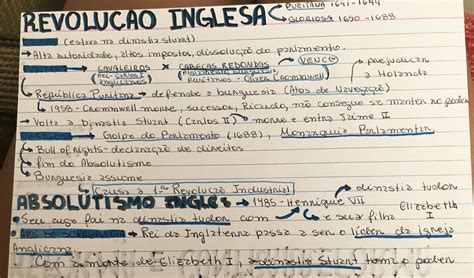 REVOLUÇAO INGLESA PURITANA 1641-1649
GLORIOSA 1650-1688
(estava na dinastia stuart)
→ Alta autoridade, altos impostos, dissolução do parlamento.
→ CAVALEIROS X CABEÇAS REDONDAS → VENCE → prejudicar
Rei-Carlos I Anglicanos Puritanos - Oliver Cromwell a Holanda
República Puritana → defende a burguesia (Atos de Navegação)
→ 1958 - Cromwell morre, sucessor, Ricardo, não consegue se manter no poder
→ Volta à Dinastia Stuart (Carlos II) → morre e entra Jaime II
Golpe do Parlamento (1688), Monarquia Parlamentar
→ Bull of rights - declaração de direitos
→ fim do Absolutismo
→ Burguesia assume
→ Causa a 1ª Revolução Industrial → dinastia tudor
ABSOLUTISMO INGLES → 1485 - Henrique VII Elizabeth I
• Seu auge foi na dinastia tudor com e sua filha
• ATO DE SUPREMACIA → Rei da Inglaterra passa a ser o líder da igreja
Anglicana
Com a morte de Elizabeth I, a dinastia Stuart toma o poder